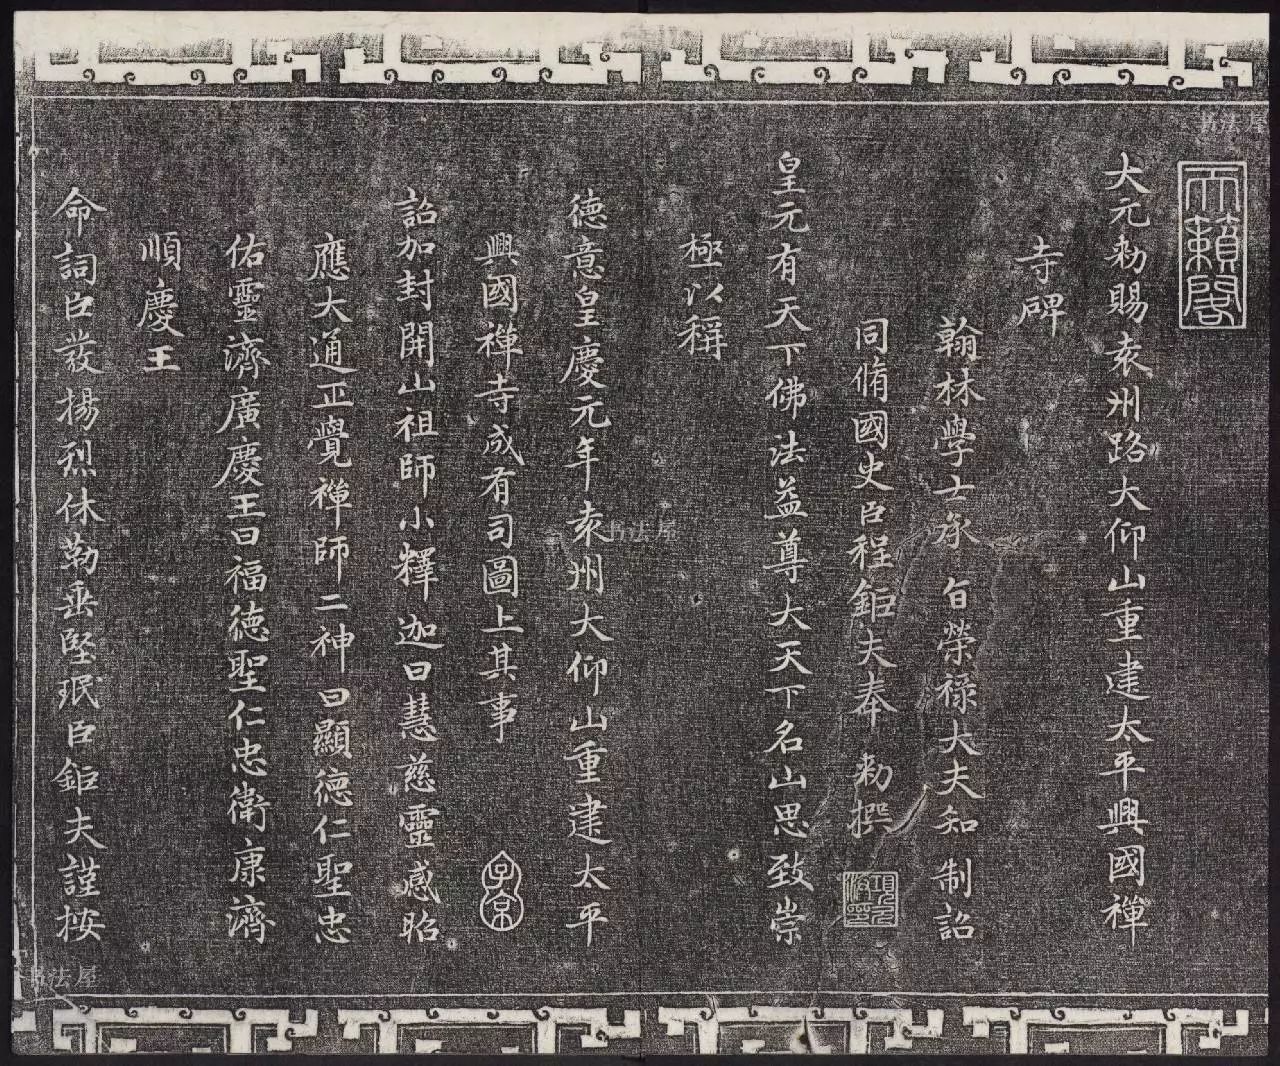 天籟閣
大元勑賜袁州路大仰山重建太平興國禪
寺碑
翰林學士承旨榮祿大夫知制詔
同脩國史臣程鉅夫奉勑撰
皇元有天下佛法益尊大天下名山思致崇
極以稱
德意皇慶元年袁州大仰山重建太平
興國禪寺成有司圖上其事
詔加封開山祖師小釋迦曰慧慈靈感昭
應大通正覺禪師二神曰顯德仁聖忠
佑靈濟廣慶王曰福德聖仁忠衛康濟
順慶王
命詞臣發揚烈休勒垂堅珉臣鉅夫謹按
子京
书法屋
书法屋
书法屋